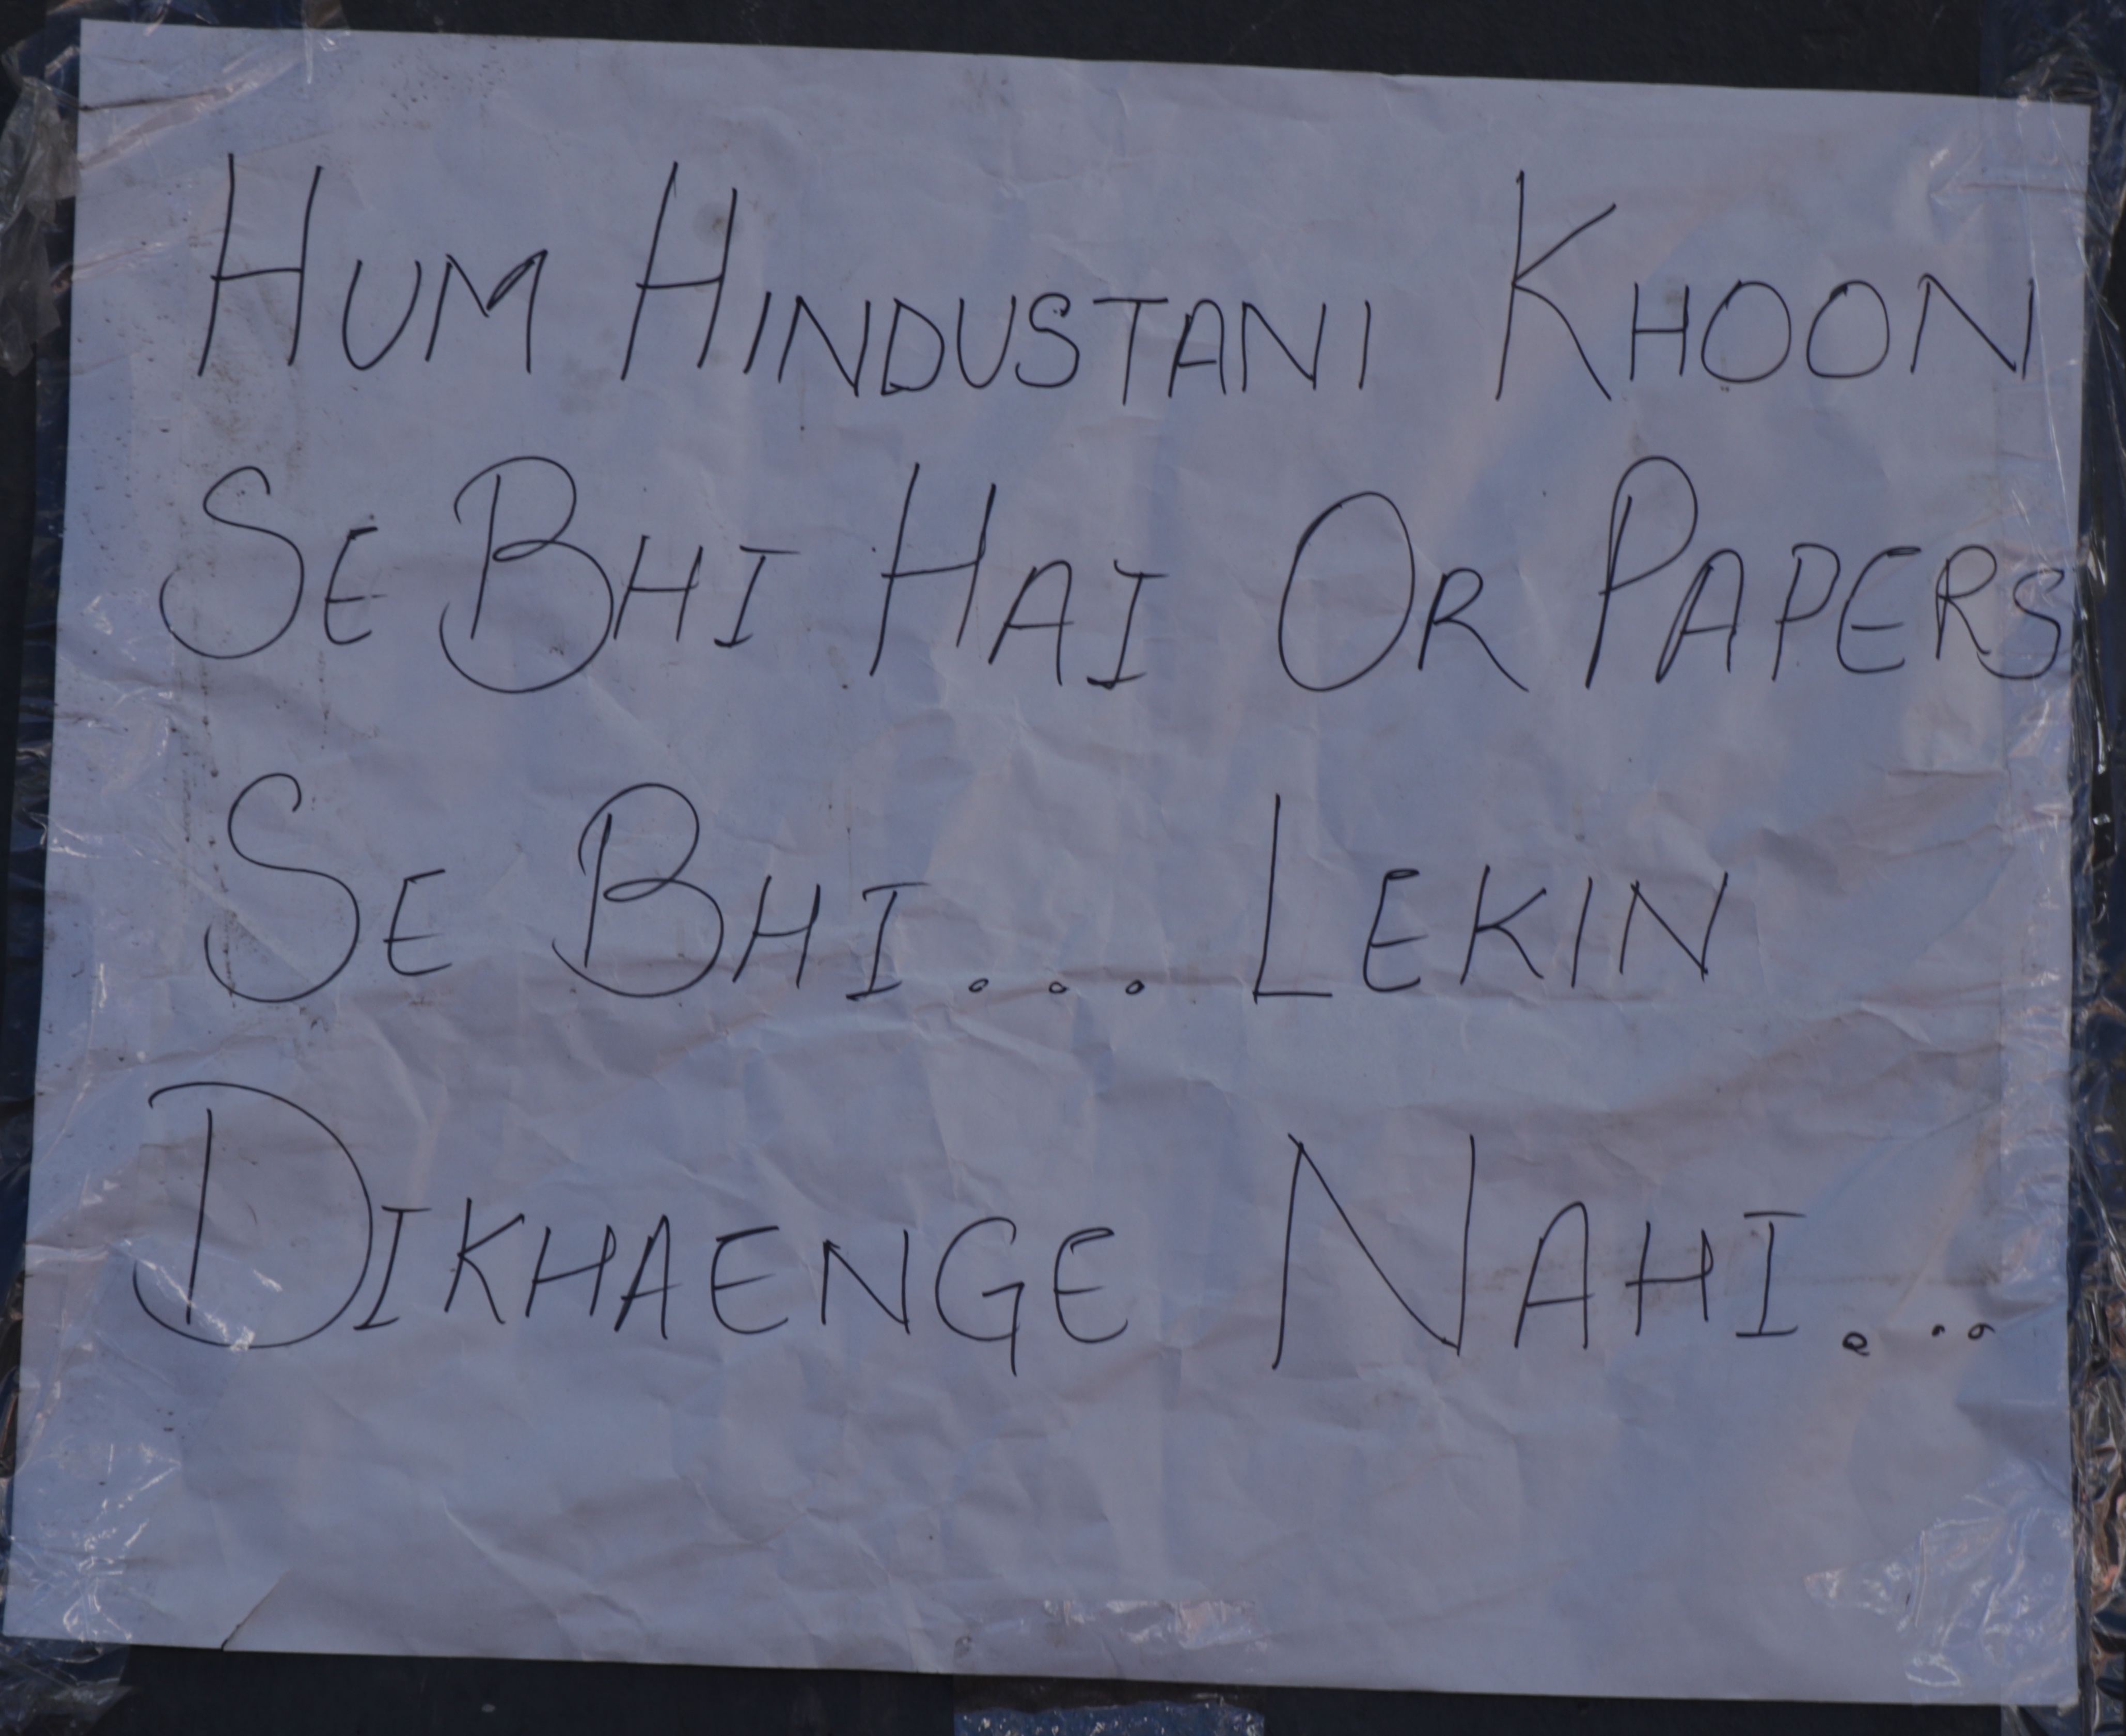 HUM HINDUSTANI KHOON
SE BHI HAI OR PAPERS
SE BHI... LEKIN
DIKHAENGE NAHI...